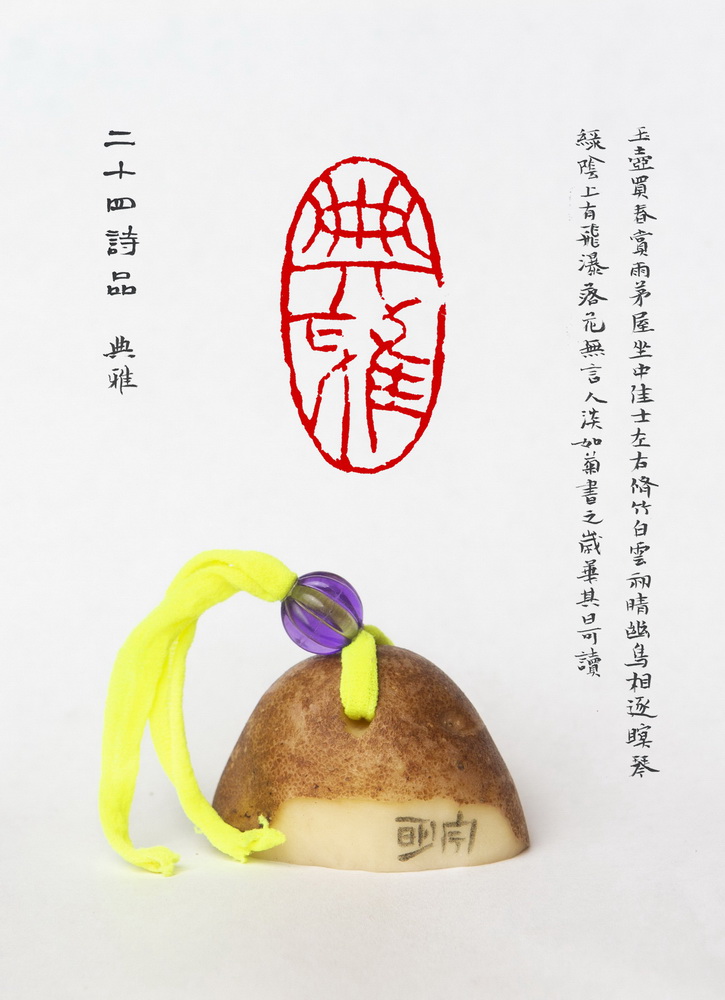 玉壺買春賞雨茅屋坐中佳士左右脩竹白雲初晴幽鳥相逐瞑琴
綠陰上有飛瀑落花無言人淡如菊書之歲華其曰可讀
典雅
二十四詩品 典雅